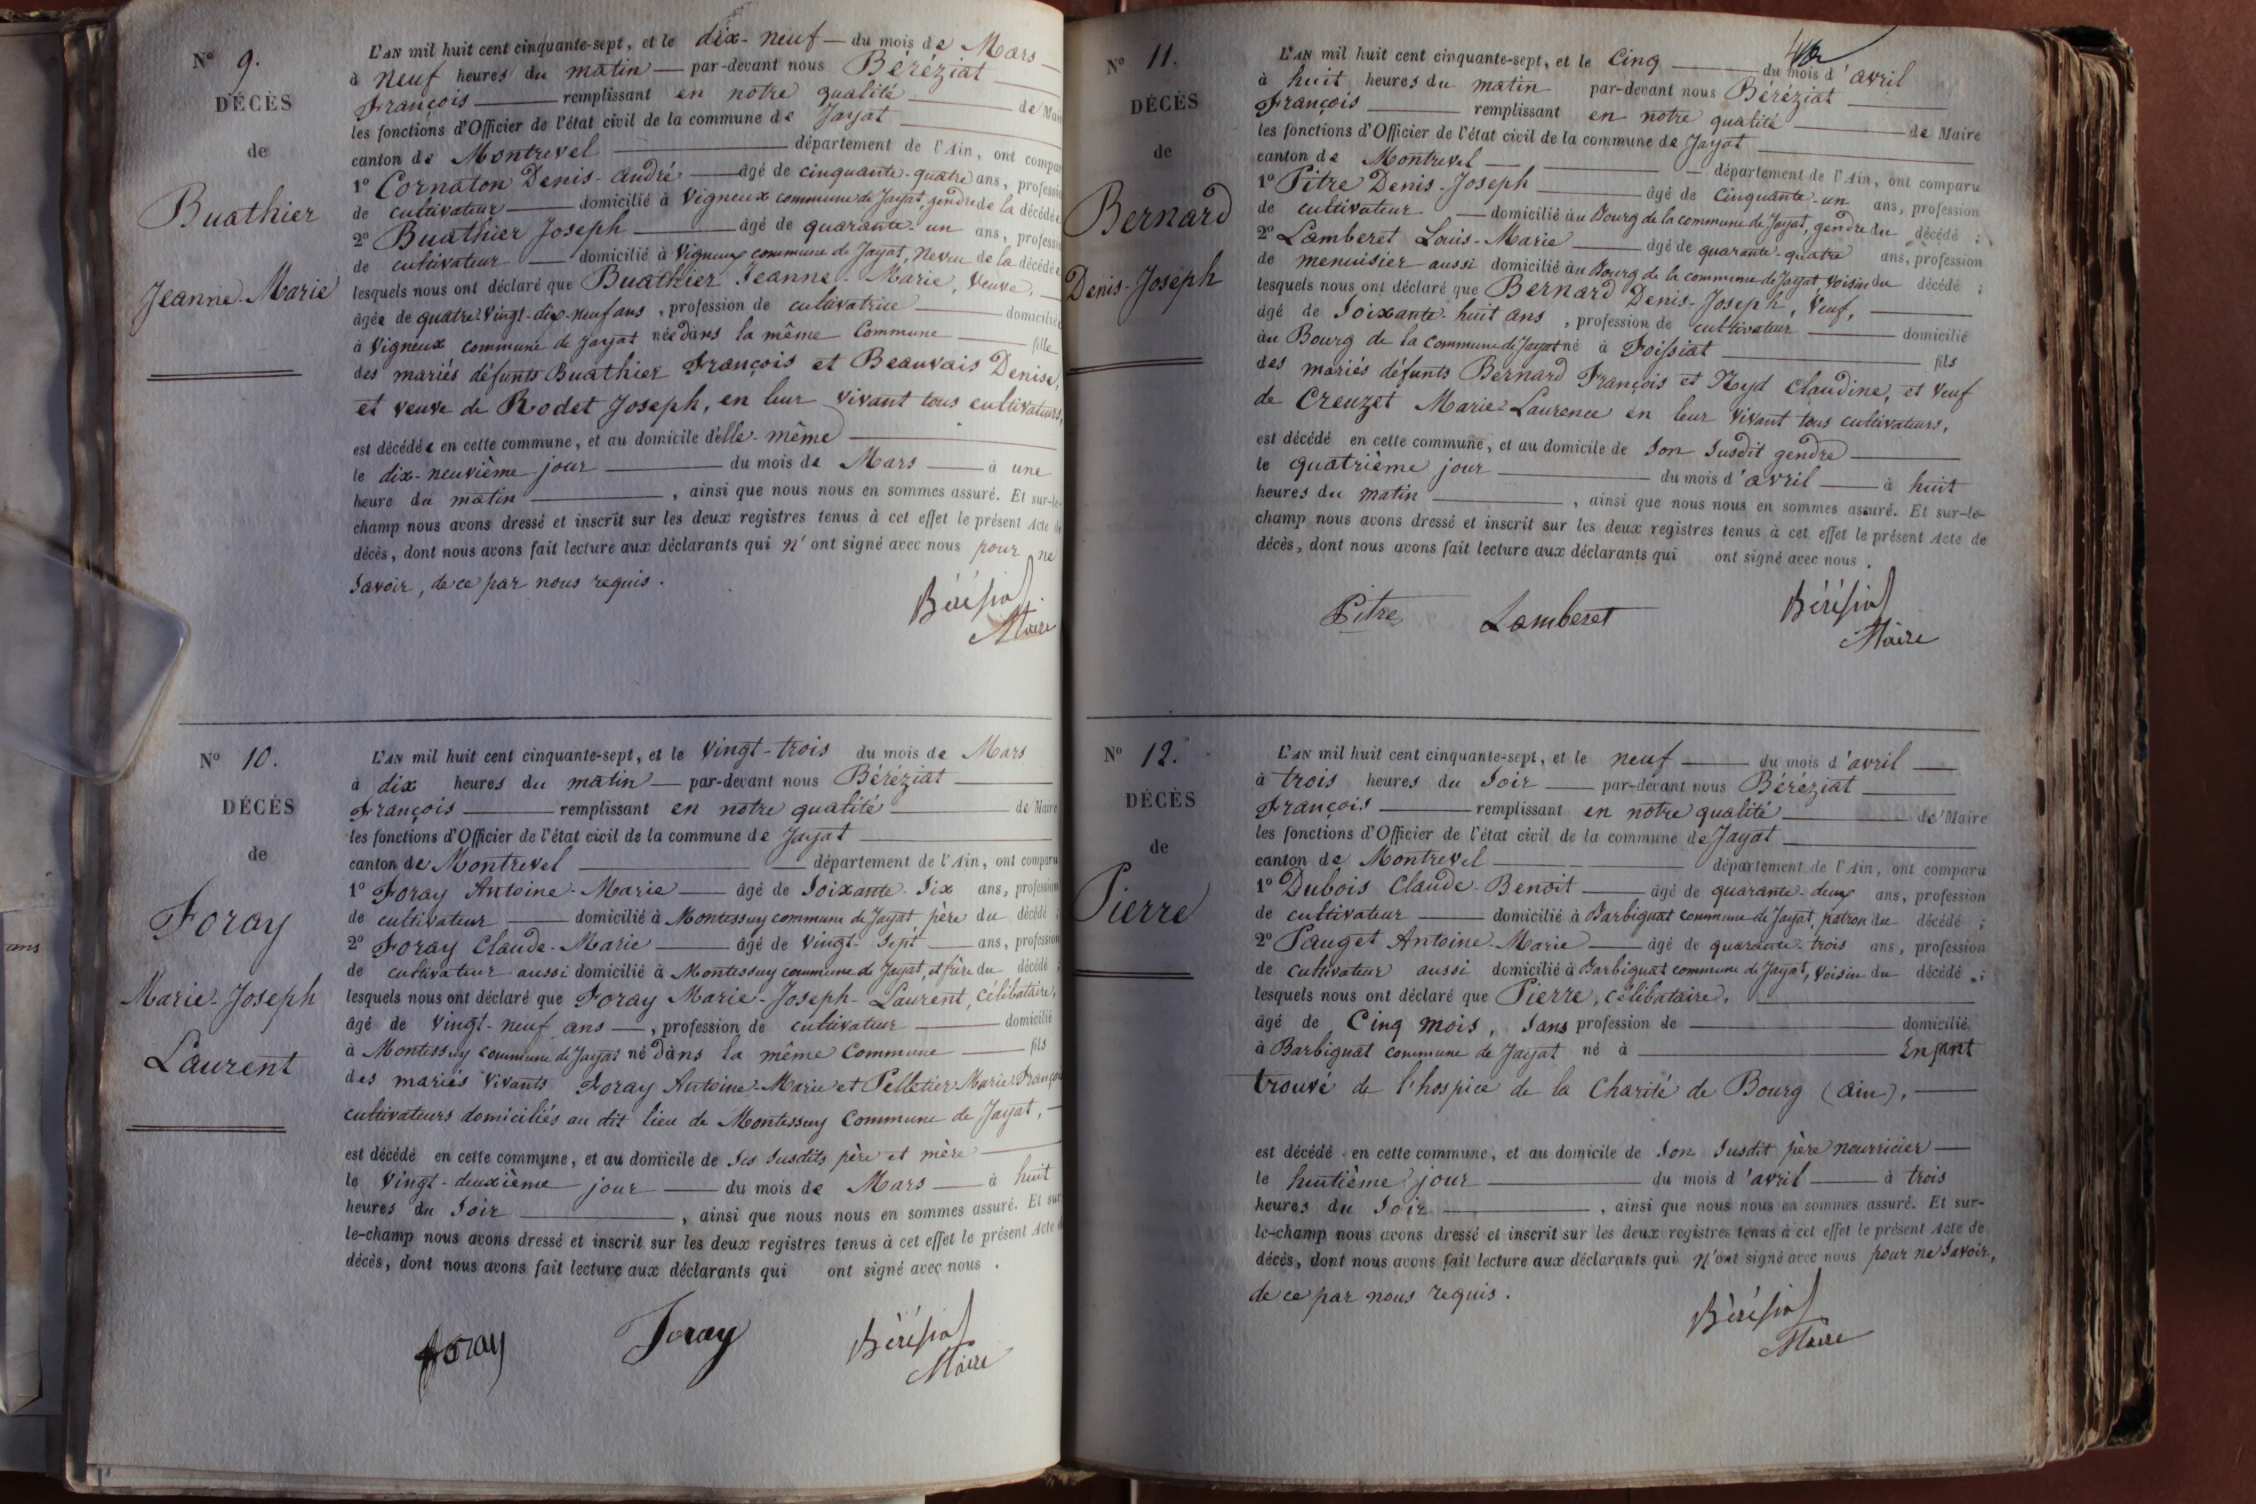 Nº 9.
DÉCÈS
de
Buathier
Jeanne-Marie
L'AN mil huit cent cinquante-sept, et le dix-neuf du mois de Mars
à neuf heures du matin par-devant nous Béréziat
François remplissant en notre qualité de Maire
les fonctions d'Officier de l'état civil de la commune de Jayat
canton de Montrevel département de l'Ain, ont comparu
1º Cornaton Denis-André âgé de cinquante-quatre ans, profession
de cultivateur domicilié à Vigneux commune de Jayat, gendre de la décédée
2º Buathier Joseph âgé de quarante-un ans, profession
de cultivateur domicilié à Vigneux commune de Jayat, Neveu de la décédée
lesquels nous ont déclaré que Buathier Jeanne-Marie, Veuve,
âgée de quatre-Vingt-dix-neuf ans, profession de cultivatrice domiciliée
à Vigneux commune de Jayat née dans la même Commune fille
des mariés défunts Buathier François et Beauvais Denise,
et veuve de Rodet Joseph, en leur vivant tous cultivateurs,
est décédée en cette commune, et au domicile d'elle-même
le dix-neuvième jour du mois de Mars à une
heure du matin, ainsi que nous nous en sommes assuré. Et sur-le-
champ nous avons dressé et inscrit sur les deux registres tenus à cet effet le présent Acte de
décès, dont nous avons fait lecture aux déclarants qui n'ont signé avec nous pour ne
Savoir, de ce par nous requis.
Bérésiat
Maire
Nº 10.
DÉCÈS
de
Foray
Marie-Joseph
Laurent
L'AN mil huit cent cinquante-sept, et le Vingt-trois du mois de Mars
à dix heures du matin par-devant nous Béréziat
François remplissant en notre qualité de Maire
les fonctions d'Officier de l'état civil de la commune de Jayat
canton de Montrevel département de l'Ain, ont comparu
1º Foray Antoine-Marie âgé de Soixante-Six ans, profession
de cultivateur domicilié à Montessuy commune de Jayat père du décédé;
2º Foray Claude-Marie âgé de Vingt-Sept ans, profession
de cultivateur aussi domicilié à Montessuy commune de Jayat, et frère du décédé;
lesquels nous ont déclaré que Foray Marie-Joseph-Laurent, célibataire,
âgé de Vingt-neuf ans, profession de cultivateur domicilié
à Montessuy commune de Jayat né dans la même Commune fils
des mariés Vivants Foray Antoine-Marie et Pelletier Marie Françoise
cultivateurs domiciliés au dit lieu de Montessuy Commune de Jayat,
est décédé en cette commune, et au domicile de Ses Susdits père et mère
le Vingt-deuxième jour du mois de Mars à huit
heures du Soir, ainsi que nous nous en sommes assuré. Et sur-
le-champ nous avons dressé et inscrit sur les deux registres tenus à cet effet le présent Acte de
décès, dont nous avons fait lecture aux déclarants qui ont signé avec nous.
Foray Foray Bérésiat
Maire
Nº 11.
DÉCÈS
de
Bernard
Denis-Joseph
L'AN mil huit cent cinquante-sept, et le Cinq du mois d'avril
à huit heures du matin par-devant nous Béréziat
François remplissant en notre qualité de Maire
les fonctions d'Officier de l'état civil de la commune de Jayat
canton de Montrevel département de l'Ain, ont comparu
1º Pitre Denis-Joseph âgé de Cinquante-un ans, profession
de cultivateur domicilié au Bourg de la commune de Jayat, gendre du décédé;
2º Lamberet Louis-Marie âgé de quarante-quatre ans, profession
de menuisier aussi domicilié au Bourg de la commune de Jayat Voisin du décédé;
lesquels nous ont déclaré que Bernard Denis-Joseph, Veuf,
âgé de Soixante-huit ans, profession de cultivateur domicilié
au Bourg de la commune de Jayat né à Foissiat fils
des mariés défunts Bernard François et Neyd Claudine, et Veuf
de Creuzet Marie-Laurence en leur vivant tous cultivateurs,
est décédé en cette commune, et au domicile de Son Susdit gendre
le quatrième jour du mois d'avril à huit
heures du matin, ainsi que nous nous en sommes assuré. Et sur-le-
champ nous avons dressé et inscrit sur les deux registres tenus à cet effet le présent Acte de
décès, dont nous avons fait lecture aux déclarants qui ont signé avec nous.
Pitre Lamberet Bérésiat
Maire
Nº 12.
DÉCÈS
de
Pierre
L'AN mil huit cent cinquante-sept, et le neuf du mois d'avril
à trois heures du Soir par-devant nous Béréziat
François remplissant en notre qualité de Maire
les fonctions d'Officier de l'état civil de la commune de Jayat
canton de Montrevel département de l'Ain, ont comparu
1º Dubois Claude-Benoit âgé de quarante-deux ans, profession
de cultivateur domicilié à Barbignat commune de Jayat, patron du décédé;
2º Pauget Antoine-Marie âgé de quarante-trois ans, profession
de cultivateur aussi domicilié à Barbignat commune de Jayat, Voisin du décédé;
lesquels nous ont déclaré que Pierre, célibataire,
âgé de Cinq mois, Sans profession de domicilié
à Barbignat commune de Jayat né à Enfant
trouvé de l'hospice de la Charité de Bourg (ain),
est décédé en cette commune, et au domicile de Son Susdit père nourricier
le huitième jour du mois d'avril à trois
heures du Soir, ainsi que nous nous en sommes assuré. Et sur-
le-champ nous avons dressé et inscrit sur les deux registres tenus à cet effet le présent Acte de
décès, dont nous avons fait lecture aux déclarants qui n'ont signé avec nous pour ne Savoir,
de ce par nous requis.
Bérésiat
Maire